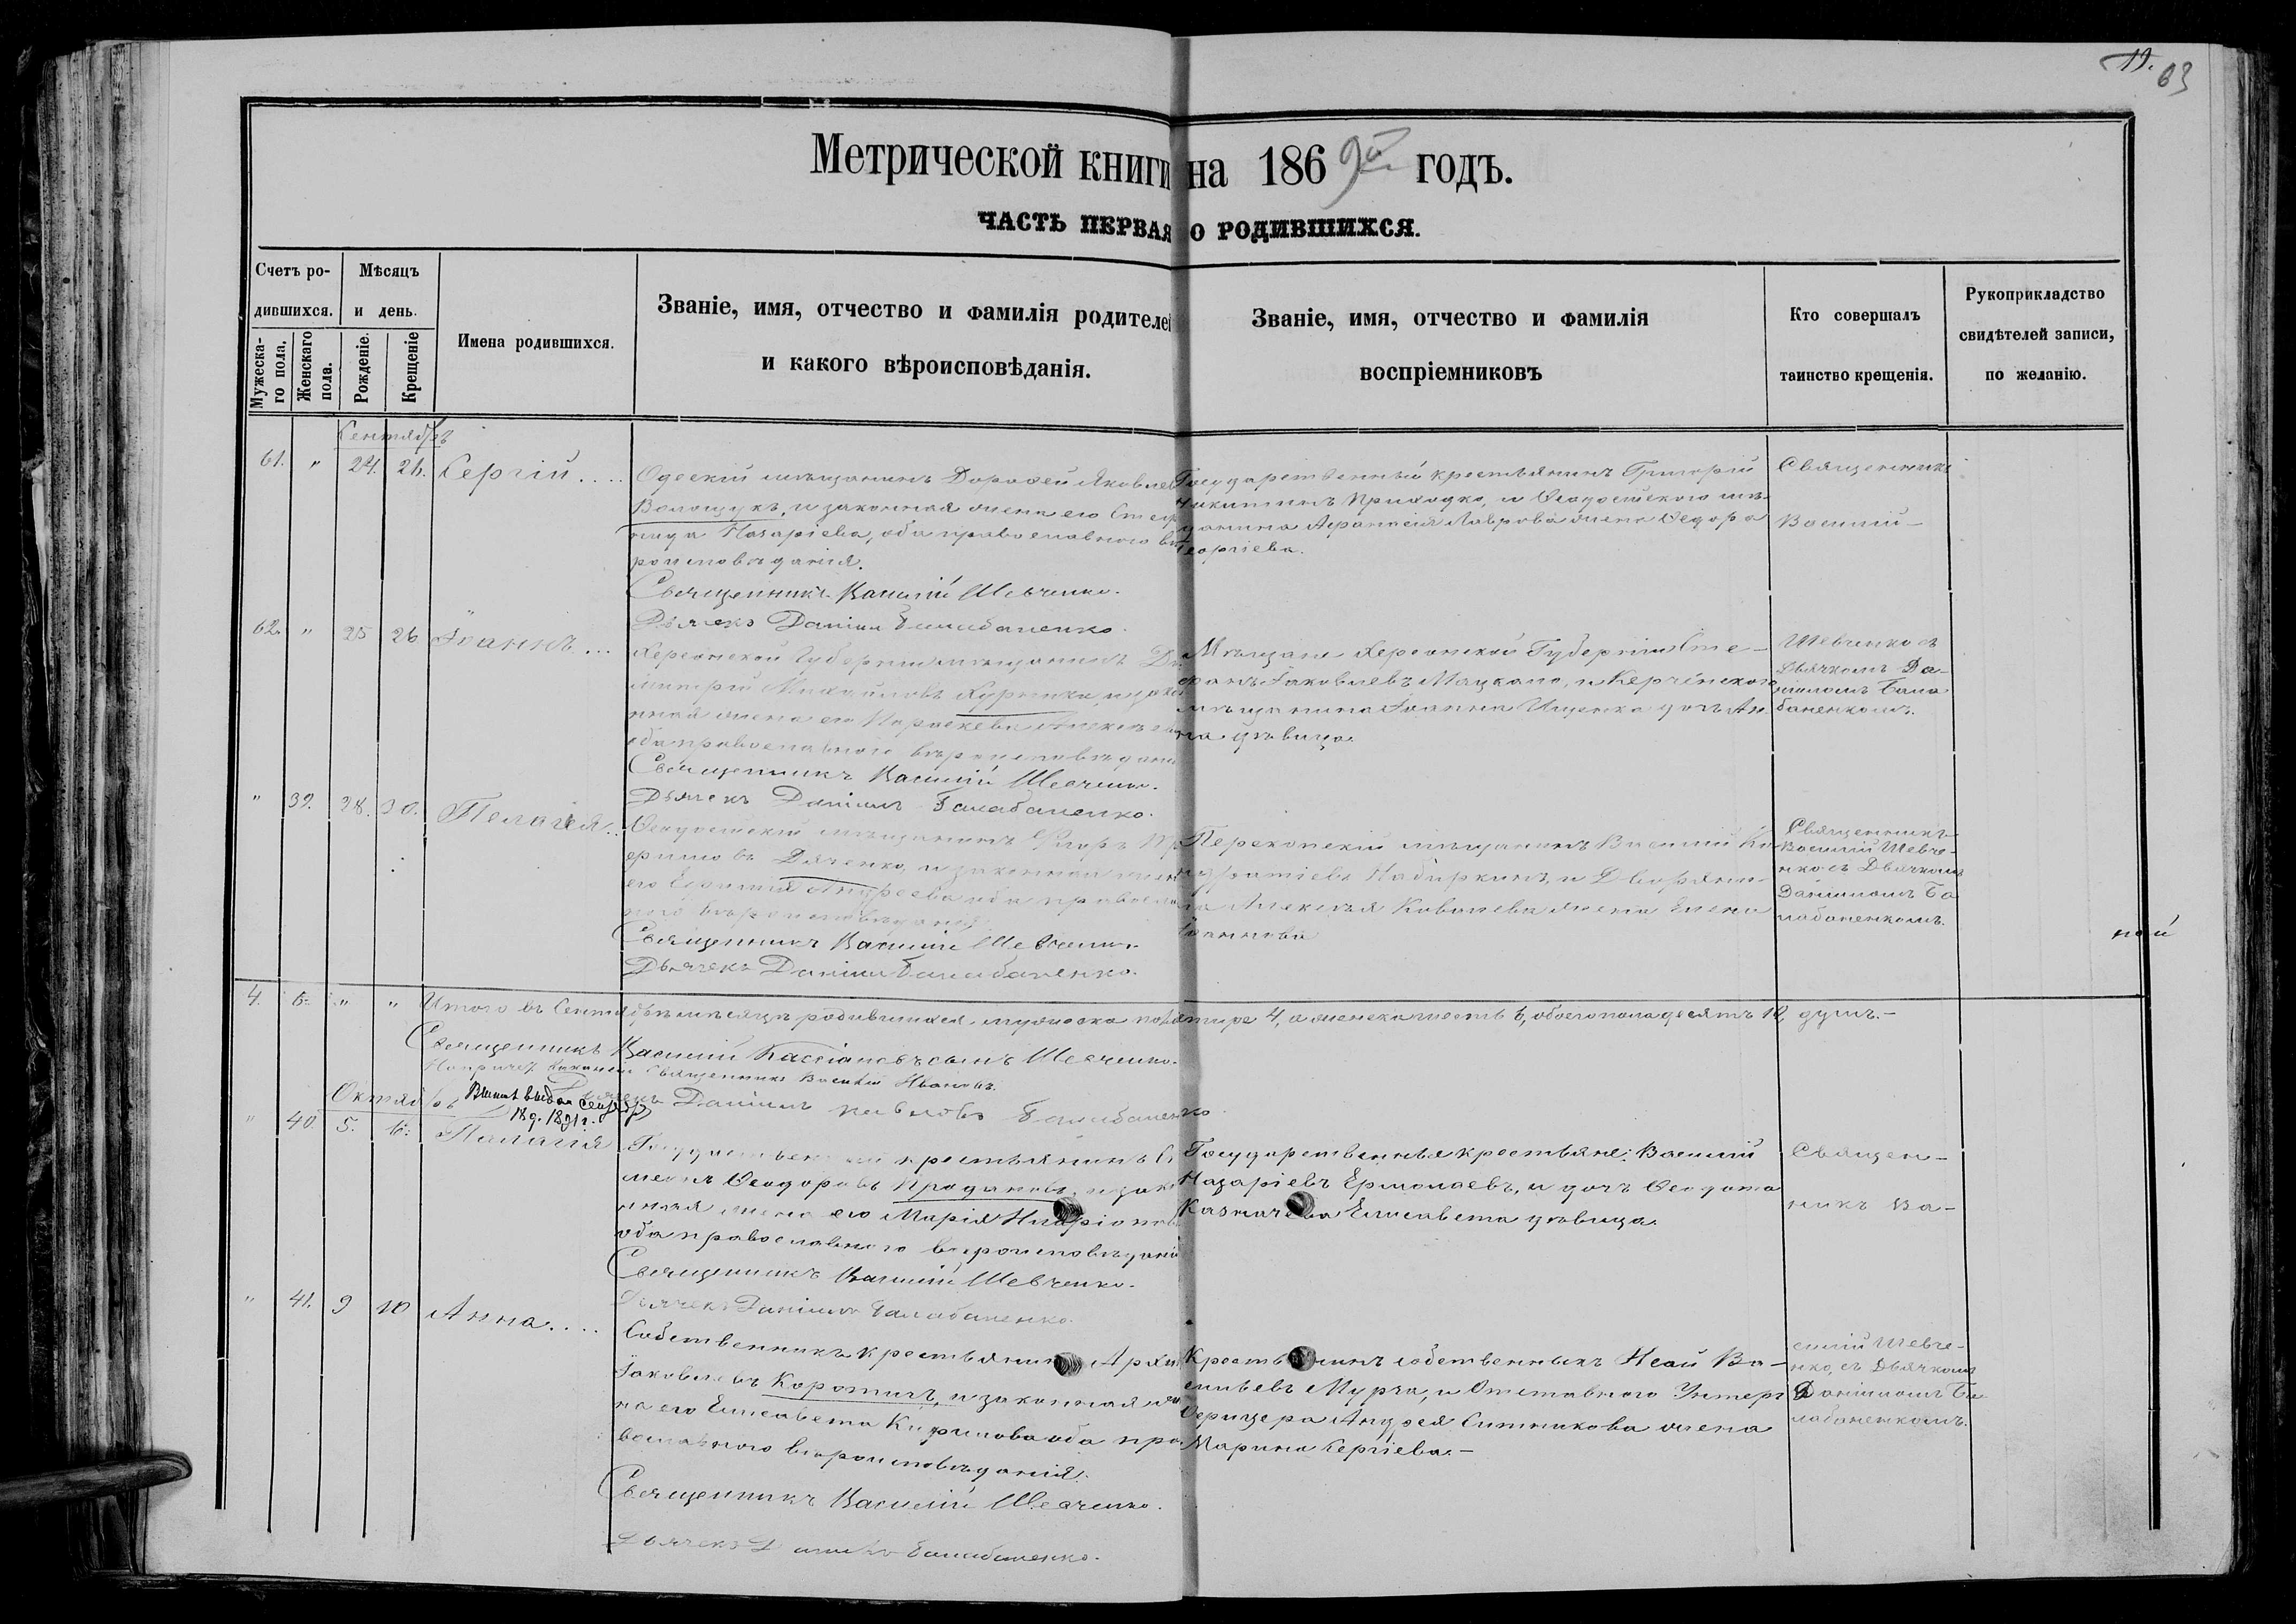 19.
63
Метрической книги на 1869й годъ.
ЧАСТЬ ПЕРВАЯ О РОДИВШИХСЯ.
Счетъ родившихся.
Мужескаго пола.
Женскаго пола.
Мѣсяцъ и день.
Рожденіе.
Крещеніе
Имена родившихся.
Званіе, имя, отчество и фамилія родителей
и какого вѣроисповѣданія.
Званіе, имя, отчество и фамилія
воспріемниковъ
Кто совершалъ
таинство крещенія.
Рукоприкладство
свидѣтелей записи,
по желанію.
Сентябрь
61. " 24. 26. Сергій....
Одескій мѣщанинъ Дорофей Яковлев
Волощукъ, и законная жена его Стеф
нида Назаріева, оба православнаго вѣ
роисповѣданія.
Священникъ Василій Шевченко.
Дьячекъ Даніилъ Балабаненко.
Государственный крестьянинъ Григорій
Никитинъ Приходко, и Ѳеодосійского мѣ-
щанина Афанасія Лаврова жена Ѳедора
Георгіева.
Священникъ
Василій
62. " 25 26 Іоаннъ...
Херсонской Губерніи мѣщанинъ Ди
митрій Михайловъ Курочка, и закон
ная жена его Параскева Алексѣева
оба православнаго вѣроисповѣдані
Священникъ Василій Шевченко.
Дьячекъ Даніилъ Балабаненко.
Мѣщане Херсонской Губерніи Сте-
фанъ Іаковлевъ Мацкало, и Керченского
мѣщанина Іоанна Ищенка дочь Ан-
на дѣвица.
Шевченко съ
Дьячкомъ Да-
ніиломъ Бала
баненкомъ.
" 39. 28. 30. Пелагія..
Ѳеодосійскій мѣщанинъ
Дяченко, и законная жена
его Андреева оба православ
ного вѣроисповѣданія.
Священникъ Василій Шевченко.
Дьячекъ Даніилъ Балабаненко.
Перекопскій мѣщанинъ Василій Ко
ндратіевъ Набиркинъ, и Дворяни-
на Алексѣя Ковалева жена Елена
Іоаннова
Священникъ
Василій Шевче-
нко съ Дьячкомъ
Даніиломъ Ба
лабаненкомъ.
4. 6. " " Итого въ Сентябрѣ мѣсяцѣ родившихся мужеска пола четыре 4, а женска шесть 6, обоего пола десять 10, душъ.-
Священникъ Василій Кассіановъ сынъ Шевченко.
Священникъ Василій Ивановъ.
Дьячекъ Даніилъ Павловъ Балабаненко.
Октябрь
18 г. 1891 г.
" 40. 5. 6. Палагія
Государственный крестьянинъ Си
меонъ Ѳеодоровъ Продановъ, и зако
нная жена его Марія Иларіонова
оба православнаго вѣроисповѣдані
Священникъ Василій Шевченко.
Дьячекъ Даніилъ Балабаненко.
Государственныя крестьяне: Василій
Назаріевъ Ермолаевъ, и дочь Ѳеодота
Казначева Елисавета дѣвица.
Священ-
никъ Ва-
" 41. 9 10 Анна....
Собственникъ крестьянинъ Архип
Іаковлевъ Коротичъ, и законная же
на его Елисавета Кирилова оба пра
вославного вѣроисповѣданія.
Священникъ Василій Шевченко.
Дьячекъ Даніилъ Балабаненко.
Крестьянинъ собственникъ Исай Ва-
сильевъ Мурча, и Отставного Унтеръ
Офрицера Андрея Ситникова жена
Марина Сергіева.-
силій Шевче-
нко, съ Дьячкомъ
Даніиломъ Ба-
лабаненкомъ.